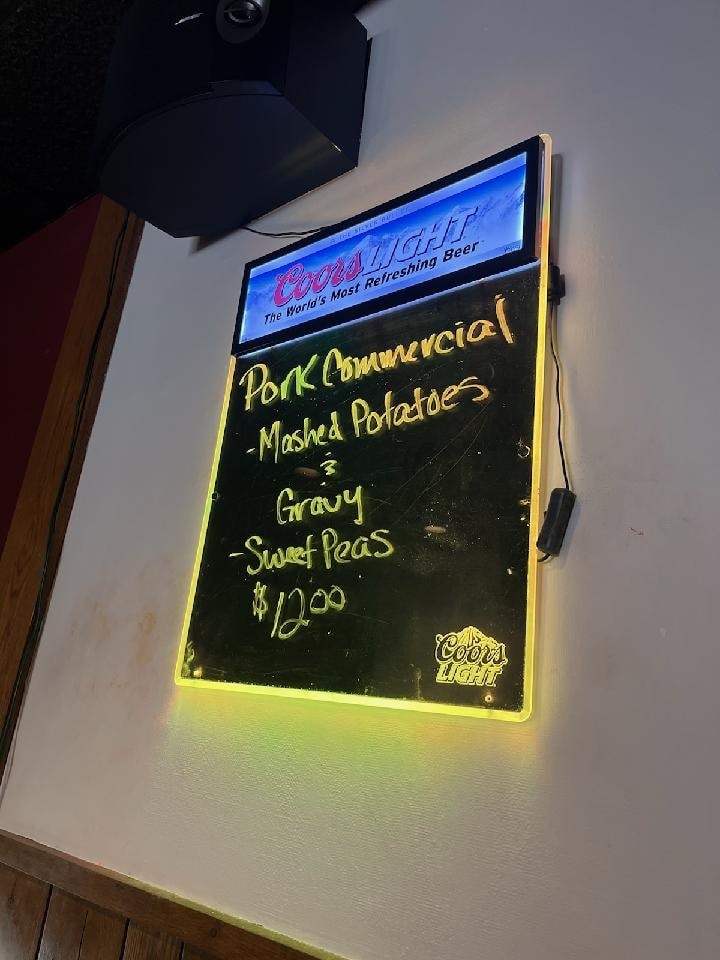 COORS LIGHT
The World's Most Refreshing Beer
Pork Commercial
- Mashed Potatoes
&
Gravy
- Sweet Peas
$12.00
Coors
LIGHT